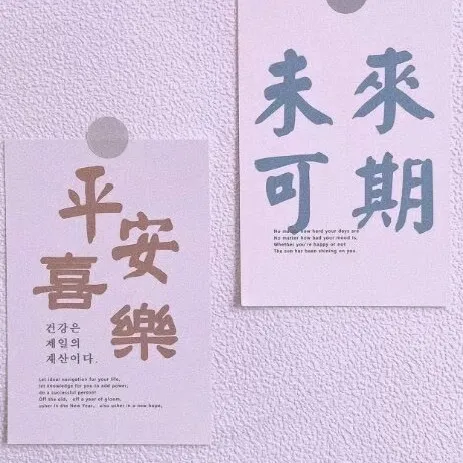 平安
喜樂
건강은
제일의
재산이다.
Let ideal navigation for your life,
let knowledge for you to add power,
do a successful person!
Off the old, off a year of gloom,
usher in the New Year, also usher in a new hope,
未來
可期
No matter how hard your days are
No matter how bad your mood is,
Whether you're happy or not
The sun has been shining on you.